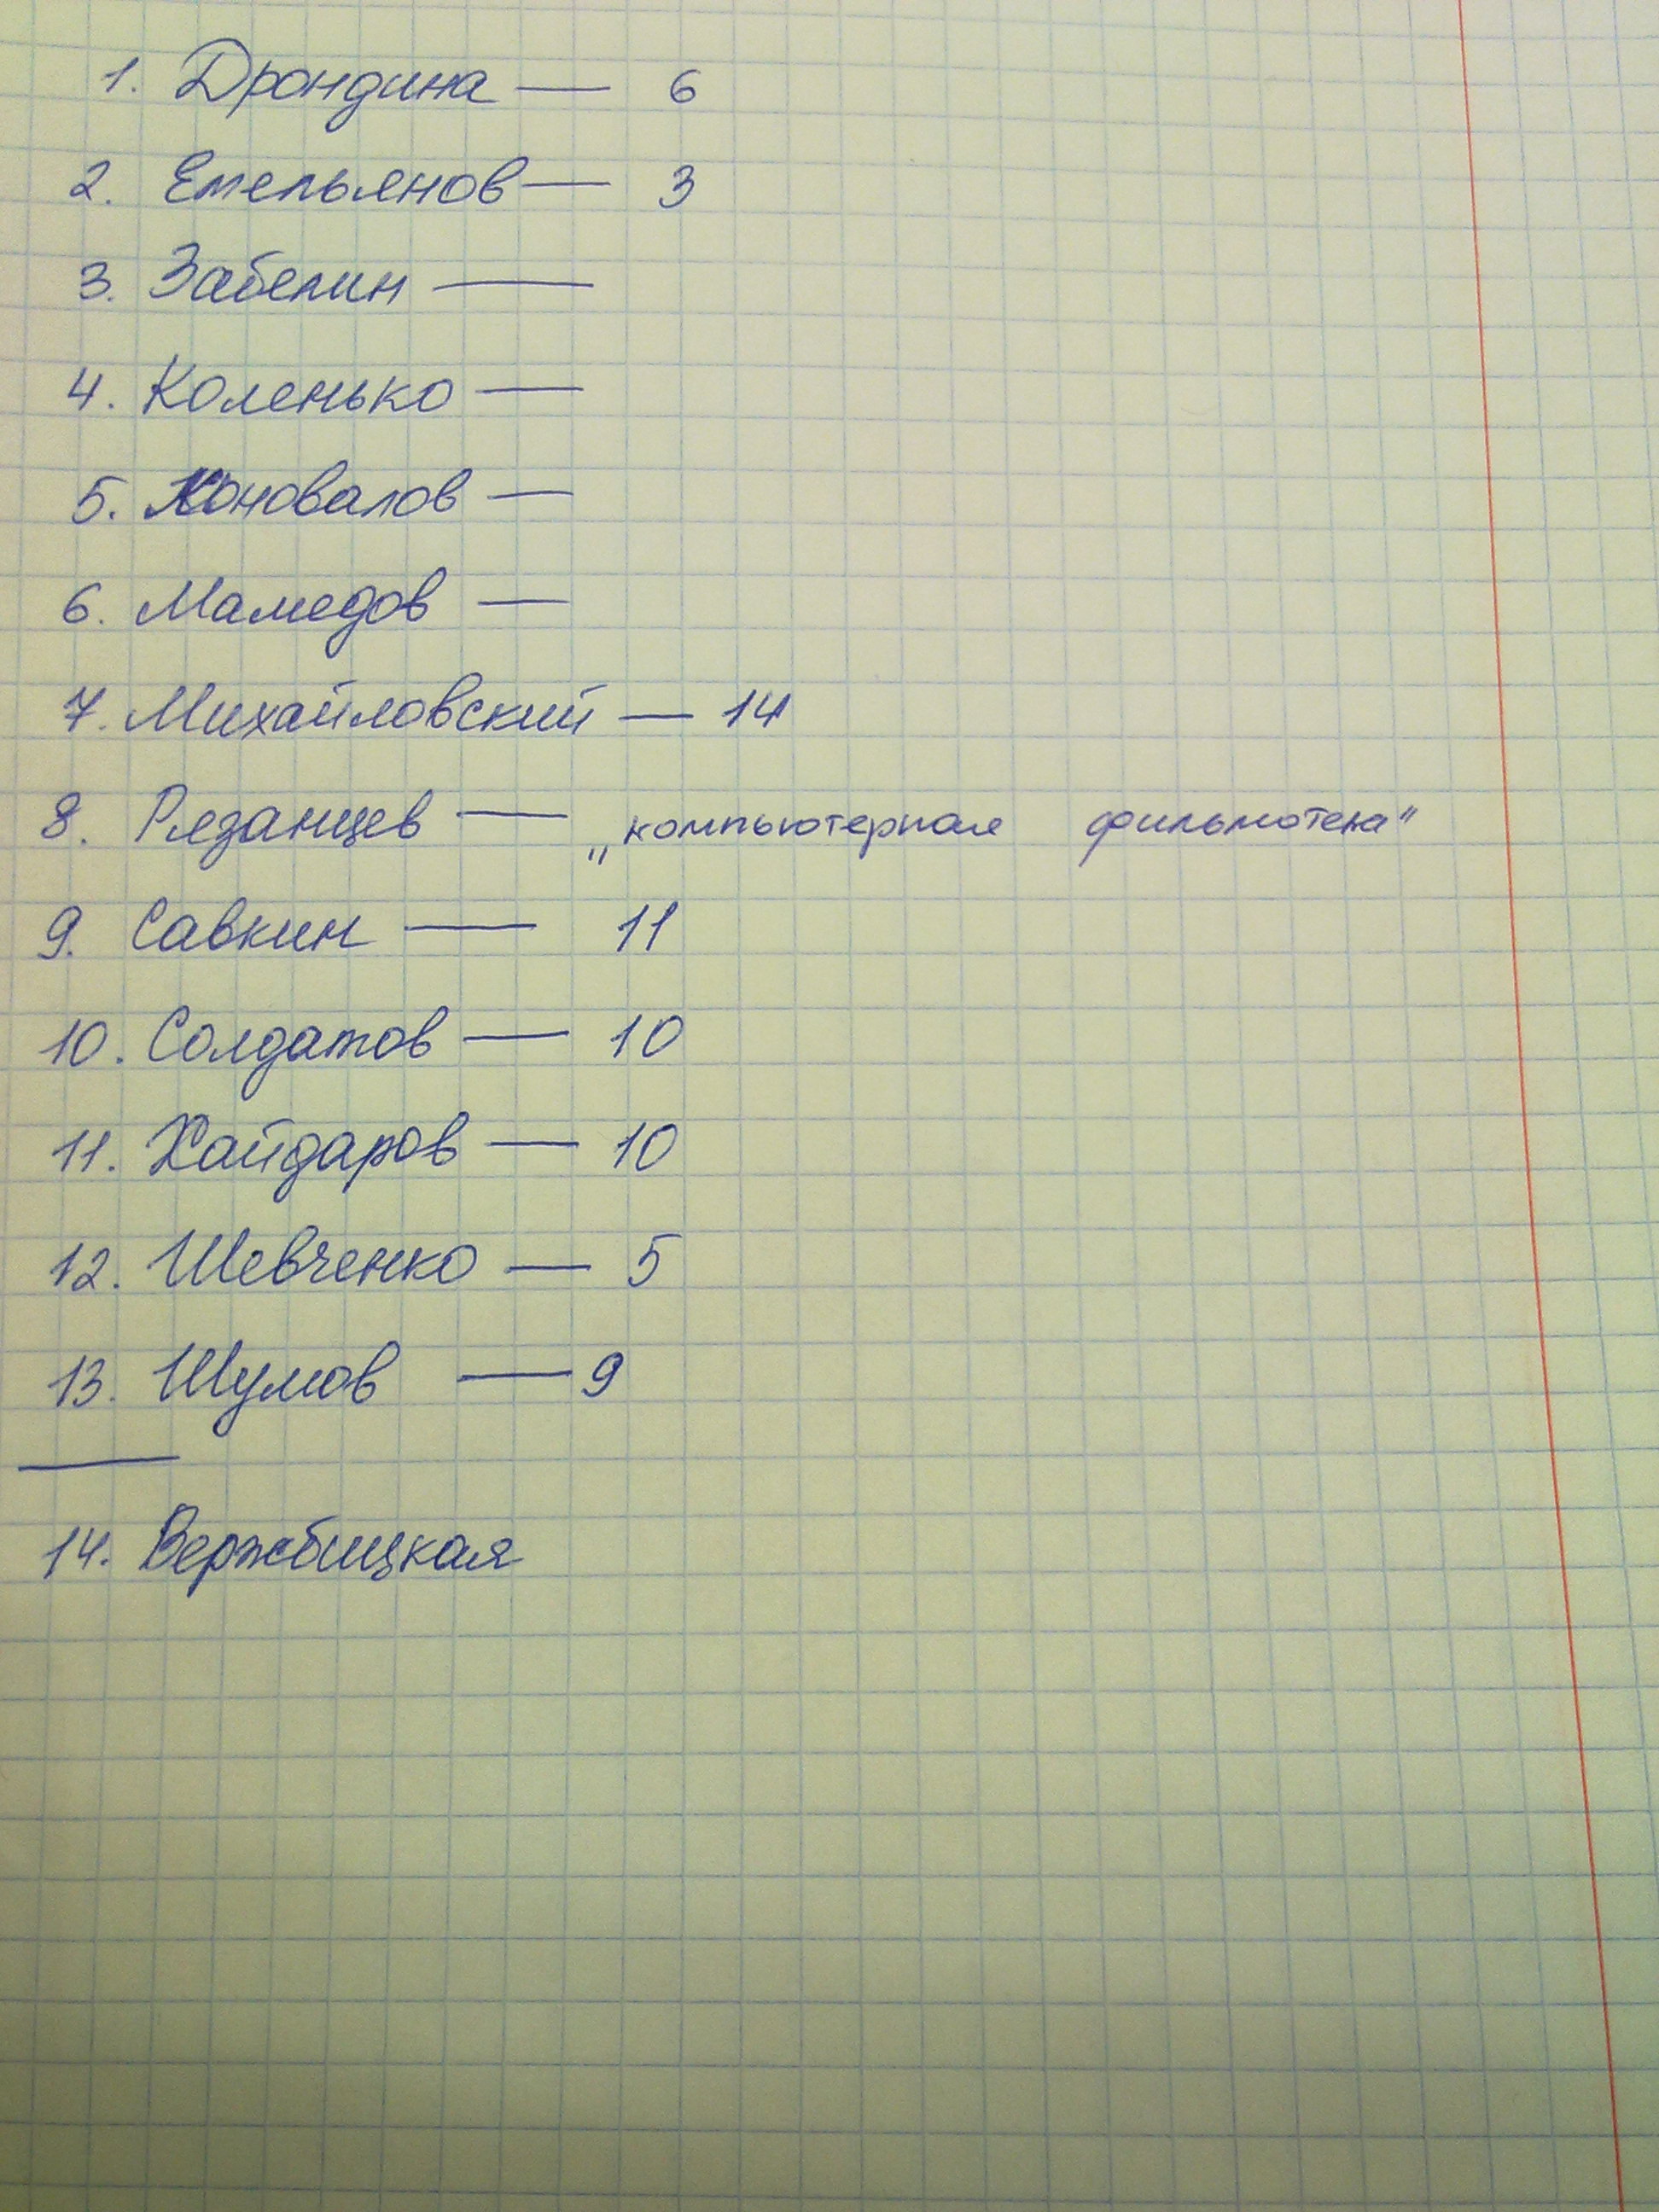 1. Дрондина — 6
2. Емельянов — 3
3. Забелин —
4. Коленько —
5. Коновалов —
6. Мамедов —
7. Михайловский — 14
8. Рязанцев — „компьютерная фильмотека“
9. Савкин — 11
10. Солдатов — 10
11. Хайдаров — 10
12. Шевченко — 5
13. Шумов — 9
14. Вержбицкая